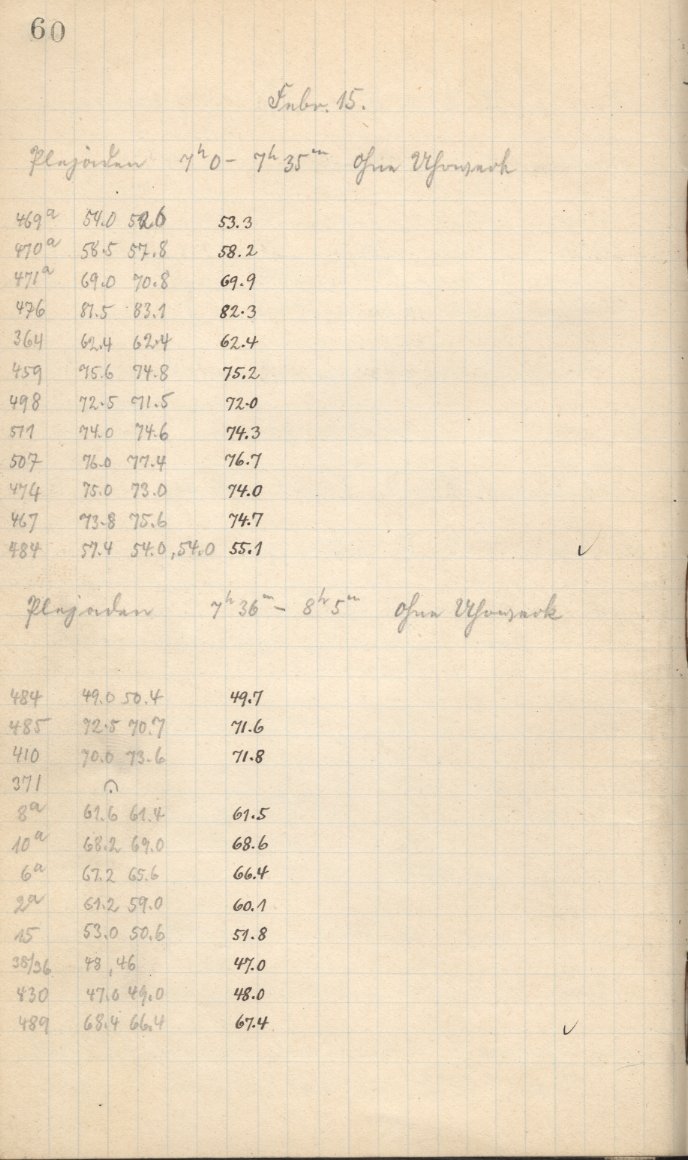 60
Febr. 15.
Plejaden 7h0 – 7h35m ohne Uhrwerk
469a 54.0 52.6 53.3
470a 58.5 57.8 58.2
471a 69.0 70.8 69.9
476 81.5 83.1 82.3
364 62.4 62.4 62.4
459 75.6 74.8 75.2
498 72.5 71.5 72.0
511 74.0 74.6 74.3
507 76.0 77.4 76.7
474 75.0 73.0 74.0
467 73.8 75.6 74.7
484 57.4 54.0, 54.0 55.1 ✓
Plejaden 7h36m – 8h5m ohne Uhrwerk
484 49.0 50.4 49.7
485 72.5 70.7 71.6
410 70.0 73.6 71.8
371
8a 61.6 61.4 61.5
10a 68.2 69.0 68.6
6a 67.2 65.6 66.4
2a 61.2 59.0 60.1
15 53.0 50.6 51.8
38/36 48, 46 47.0
430 47.0 49.0 48.0
489 68.4 66.4 67.4 ✓